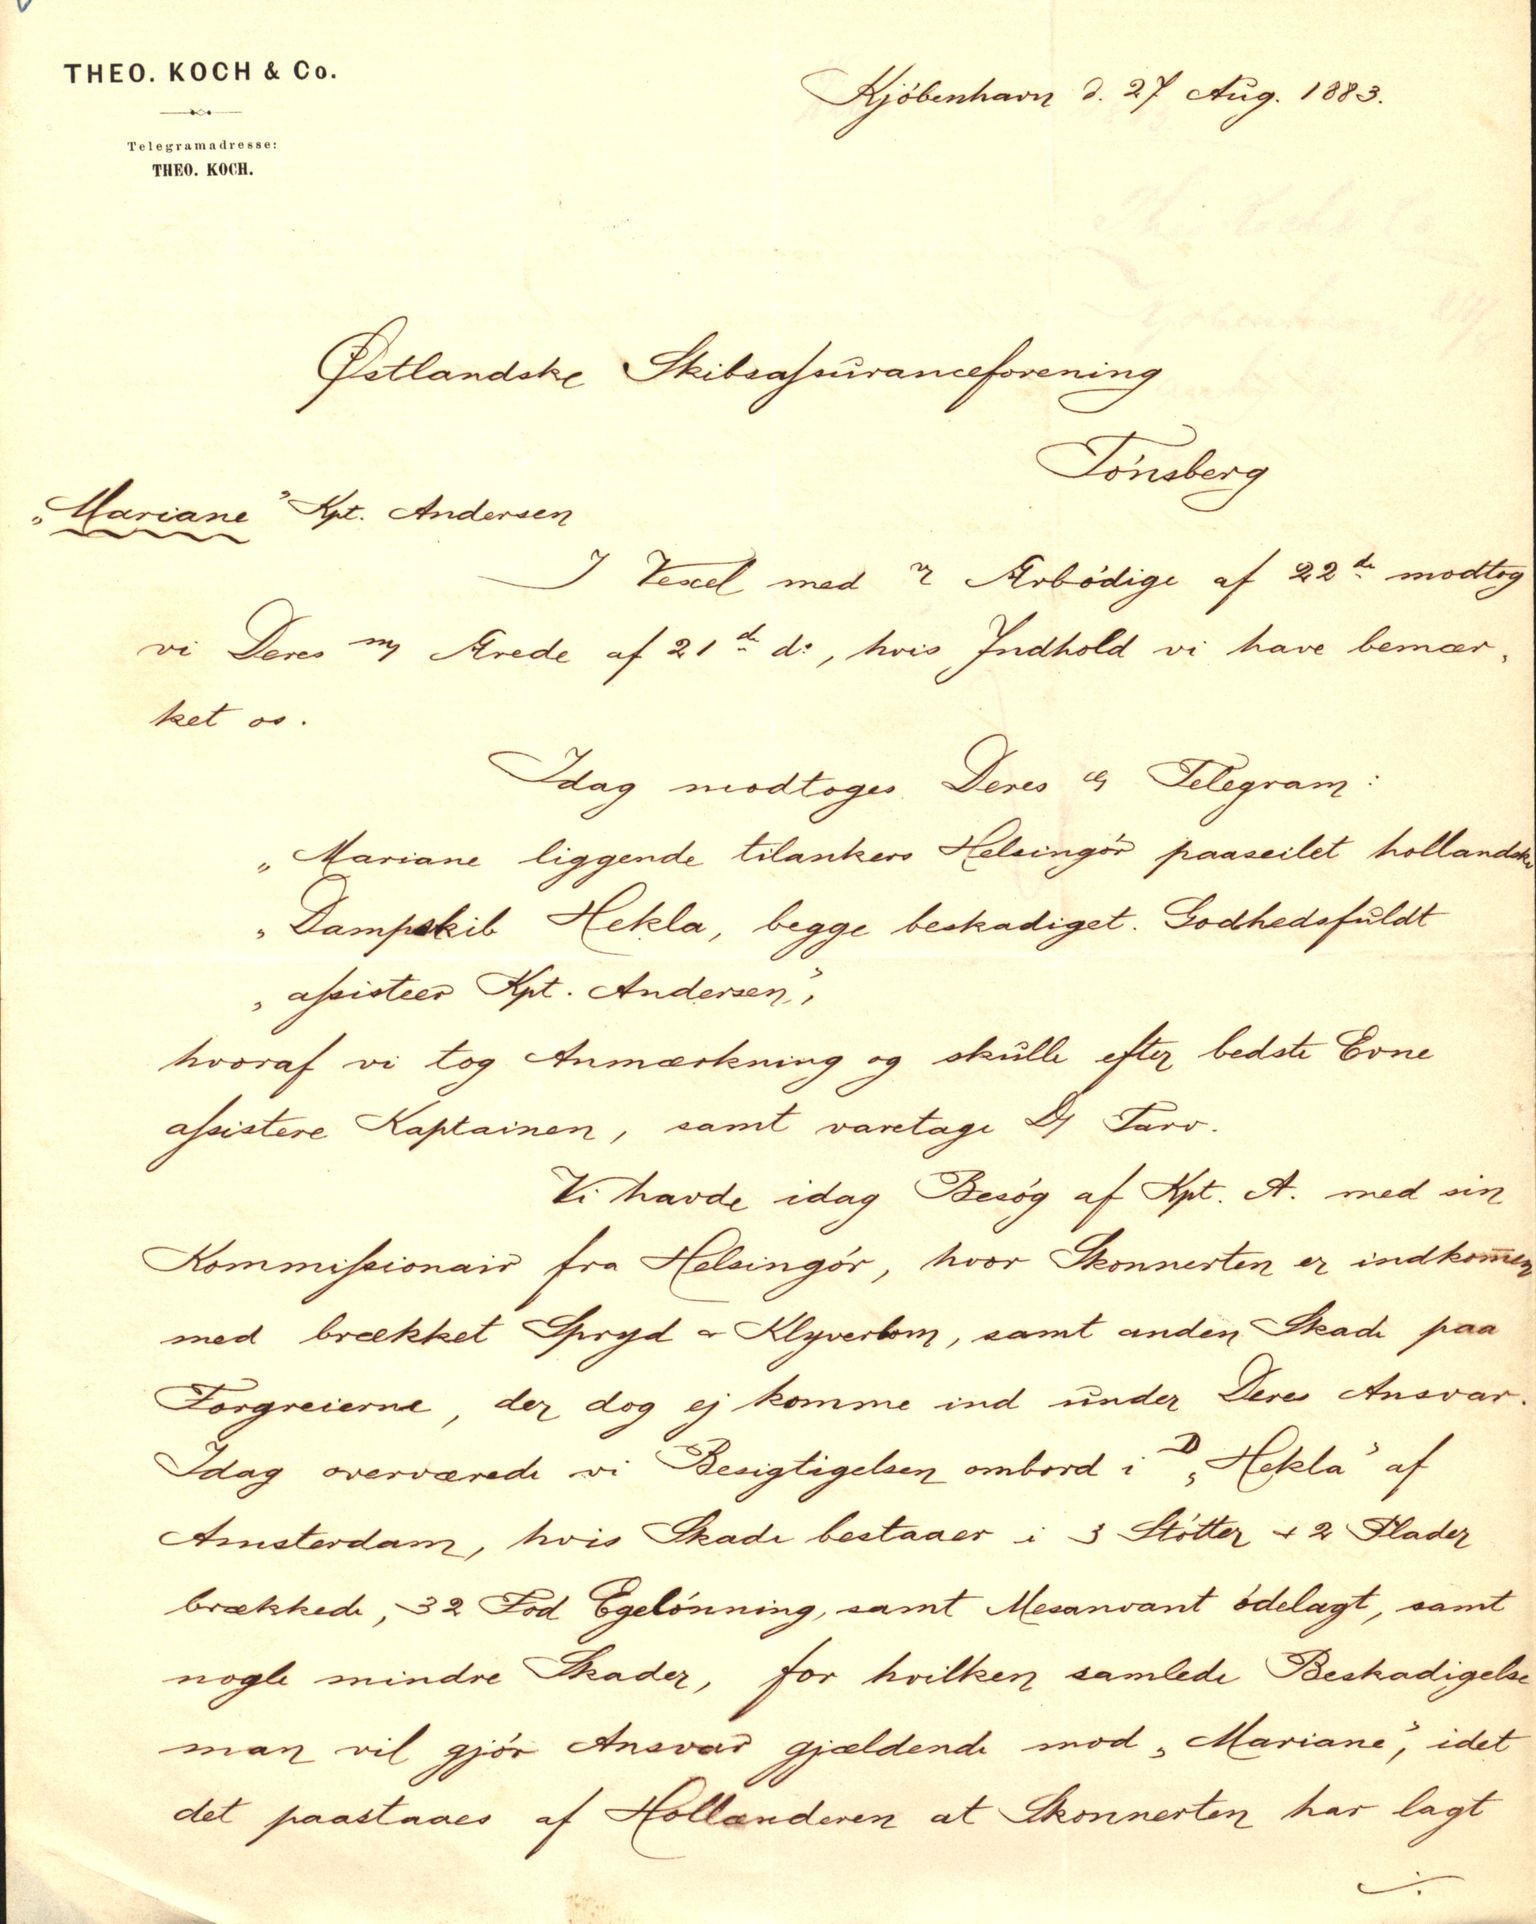 THEO. KOCH & Co.
Telegramadresse:
THEO. KOCH.
Kjöbenhavn d. 27 Aug. 1883.
Østlandske Skibsassuranceforening
Tönsberg
„Mariane" Kpt. Andersen
I Vexel med Ærbödige af 22de modtog
vi Deres Ærede af 21de do, hvis Indhold vi have bemær-
ket os.
Idag modtoges Deres Telegram:
„Mariane liggende tilankers Helsingör paaseilet hollandske
„Dampskib Hekla, begge beskadiget. Godhedsfuldt
„assisteer Kpt. Andersen",
hvoraf vi tog Anmærkning og skulle efter bedste Evne
assistere Kaptainen, samt varetage Tarv.
Vi havde idag Besög af Kpt. A. med sin
Kommissionair fra Helsingör, hvor Skonnerten er indkommen
med brækket Spryd & Klyverbom, samt anden Skade paa
Forgreierne, der dog ej komme ind under Deres Ansvar.
Idag overværede vi Besigtigelsen ombord i D „Hekla" af
Amsterdam, hvis Skade bestaaer i 3 Stötter & 2 Flader
brækkede, 32 Fod Egelönning, samt Mesanvant ödelagt, samt
nogle mindre Skader, for hvilken samlede Beskadigelse
man vil gjör Ansvar gjældende mod „Mariane", idet
det paastaaes af Hollænderen at Skonnerten har lagt
./.